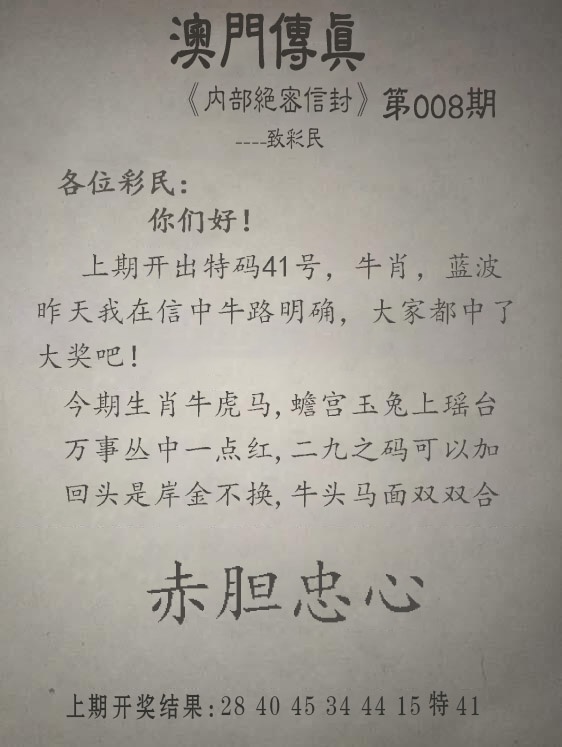 澳門傳眞
《内部絕密信封》第008期
----致彩民
各位彩民:
你们好!
上期开出特码41号，牛肖，蓝波
昨天我在信中牛路明确，大家都中了
大奖吧!
今期生肖牛虎马,蟾宫玉兔上瑶台
万事丛中一点红,二九之码可以加
回头是岸金不换,牛头马面双双合
赤胆忠心
上期开奖结果:28 40 45 34 44 15特41